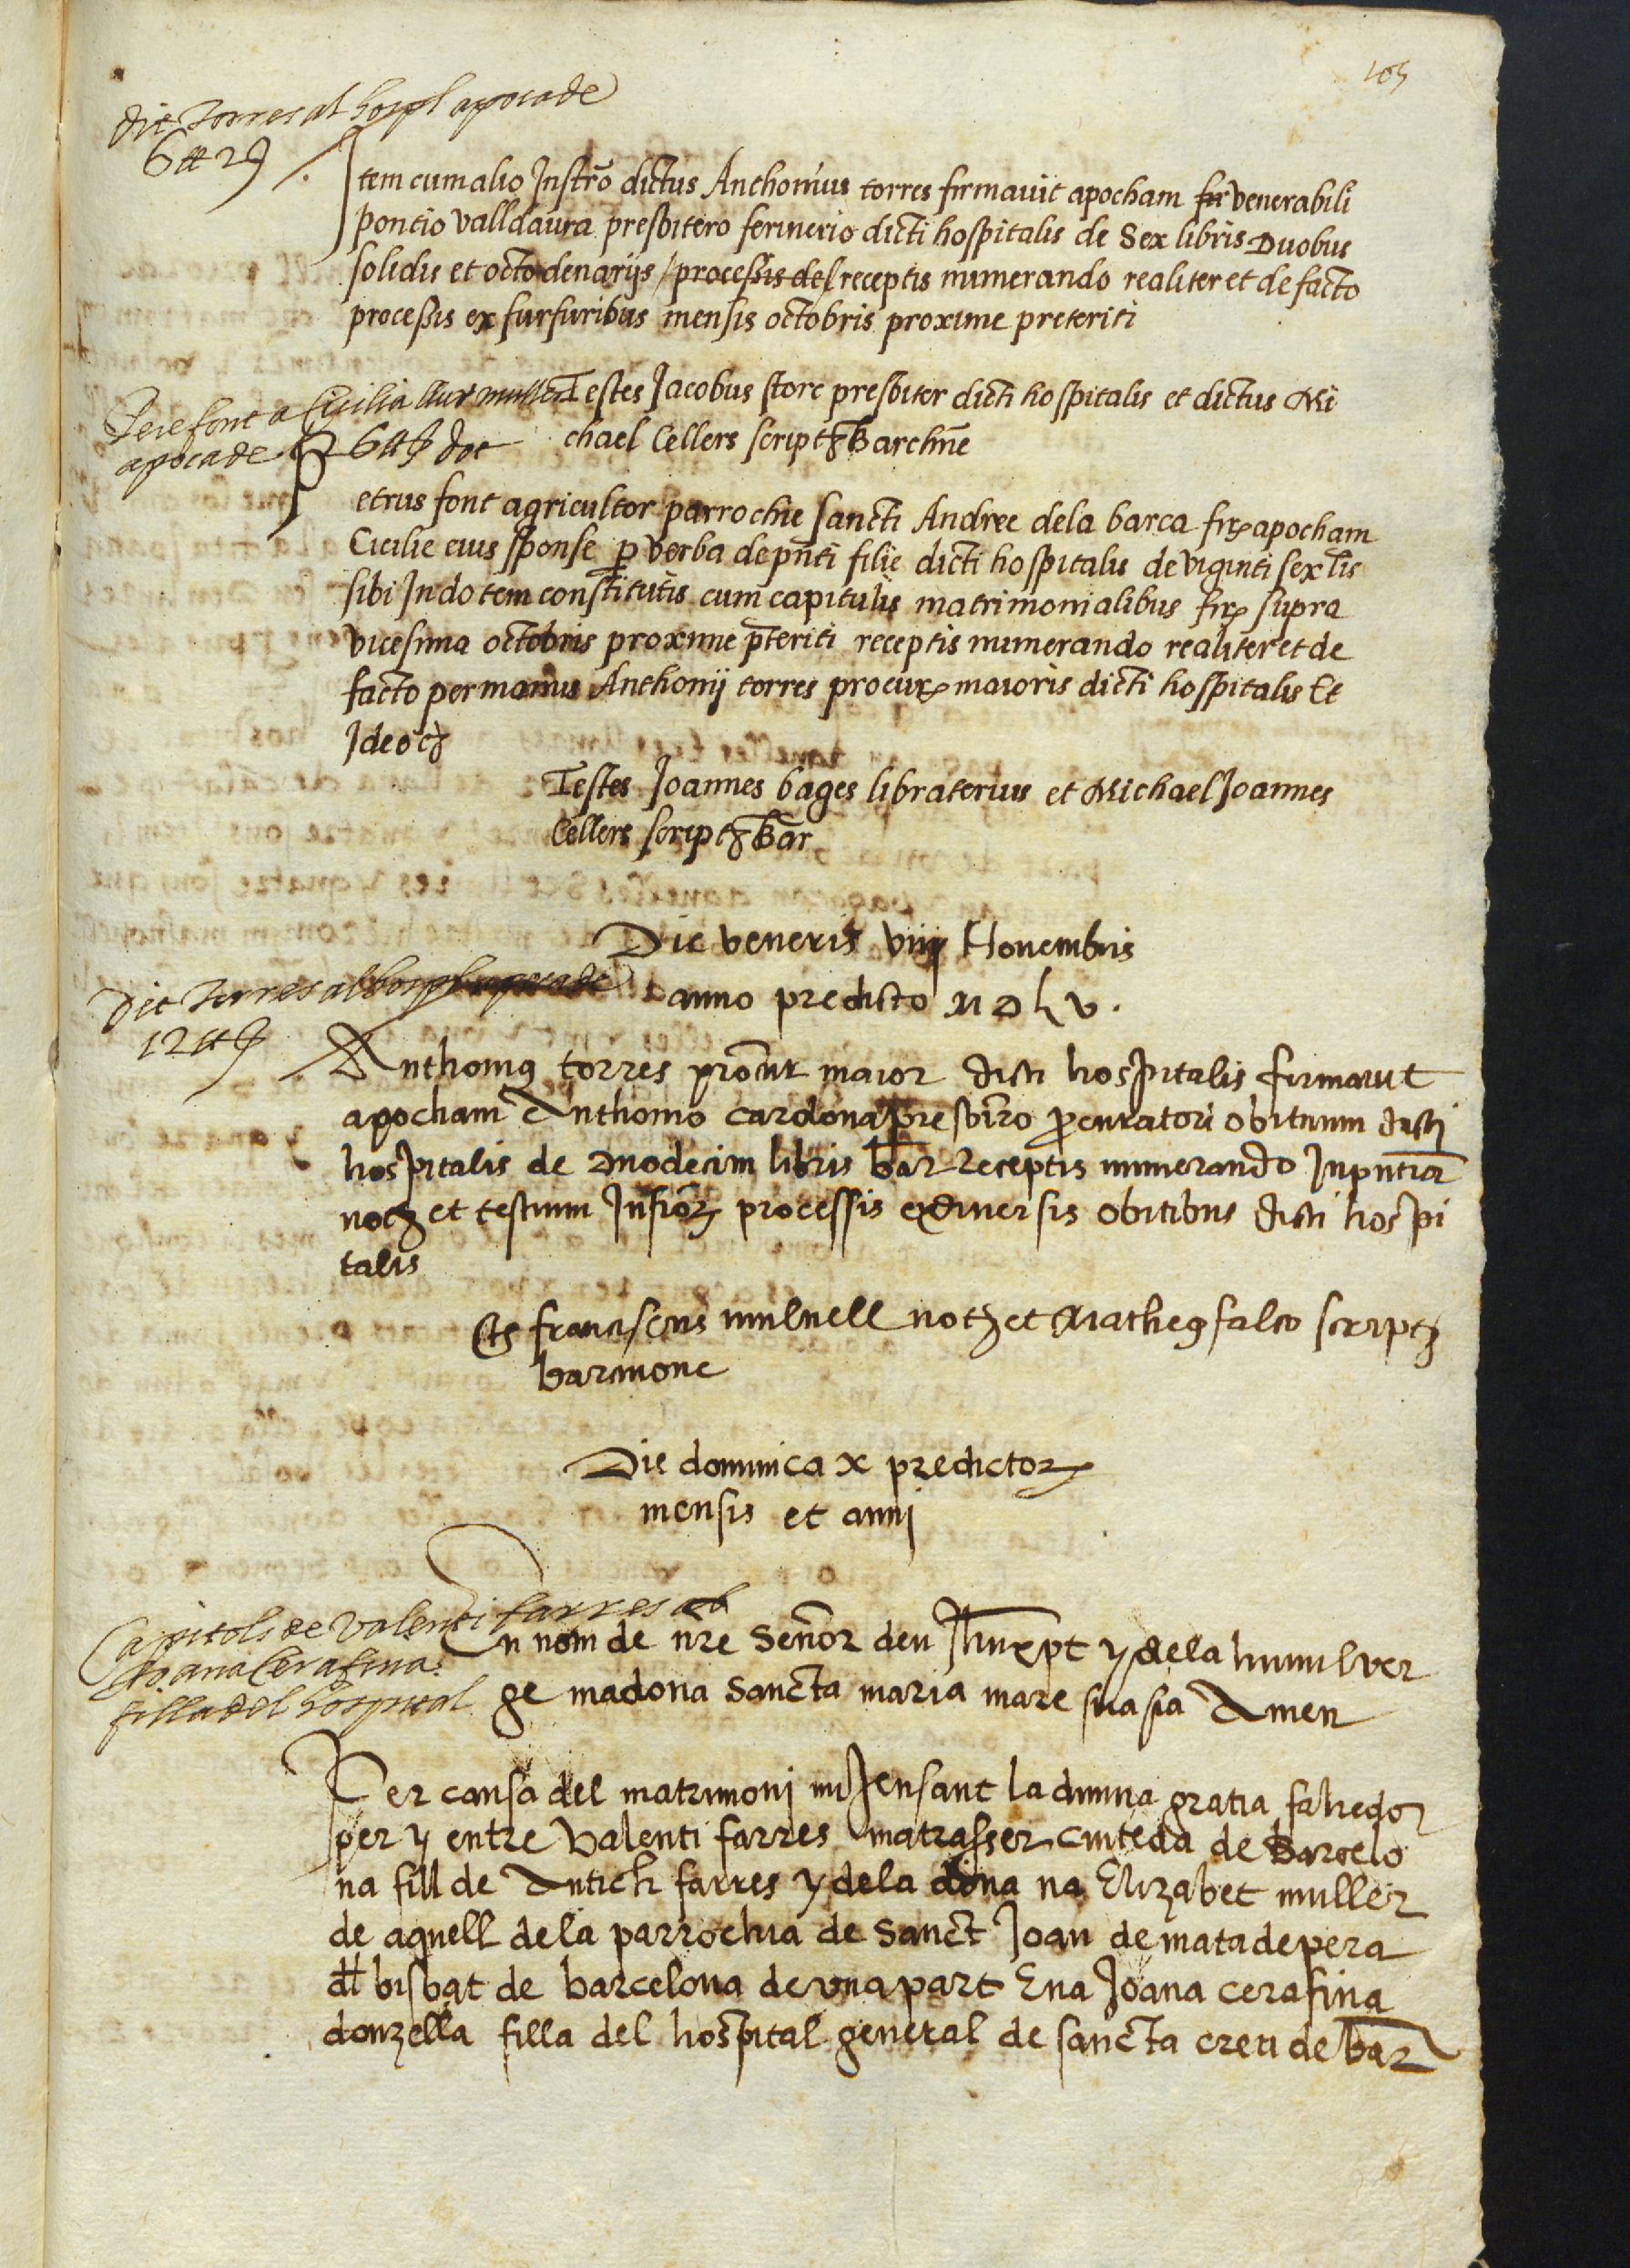 103
Dit Torres al hospl apoca de
6 ll 2 s
Item cum alio Instro dictus Anthonius torres firmavit apocham fir venerabili
pontio valldaura presbitero ferinerio dicti hospitalis de Sex libris Duobus
solidis et octo denarijs / processis de / receptis numerando realiter et de facto
processis ex furfuribus mensis octobris proxime preteriti
Testes Jacobus store presbiter dicti hospitalis et dictus Mi
chael Cellers script Barchne
Pere font a Cicilia llur muller
apoca de 26 ll dot
Petrus font agricultor parrochie sancti Andree dela barca fir apocham
Cicilie eius sponse p verba de pnti filie dicti hospitalis de viginti sex lis
sibi In dotem constitutis cum capitulis matrimonialibus fir supra
vicesima octobris proxime pteriti receptis numerando realiter et de
facto per manus Anthonij torres procur maioris dicti hospitalis Et
Ideo etc
Testes Joannes bages libraterius et Michael Joannes
Cellers script Bar
Die veneris viij Novembris
anno predicto M D L v.
Dit Torres al hospl apoca de
12 ll s
Anthonius torres procur maior dicti hospitalis firmavit
apocham Anthonio cardona presbiro procuratori obituum dicti
hospitalis de duodecim libris bar receptis numerando In pntia
not et testium Infror processis ex diversis obitibus dicti hospi
talis
Ts franciscus mulnell not et Matheus falco script
barcinone
Die dominica x predictor
mensis et annj
Capitols de Valenti farres ab
Joana Cerafina
filla del hospital
En nom de nre Senor deu Jhu xpt y dela humil ver
ge madona Sancta maria mare sua sia Amen
Per causa del matrimonj mijensant la divina gratia fahedor
per y entre Valenti farres matrasser ciuteda de Barcelo
na fill de Antich farres y dela dona na Elizabet muller
de aquell dela parrochia de Sanct Joan de matadepera
dll bisbat de barcelona de una part E na Joana cerafina
donzella filla del hospital general de sancta creu de bar